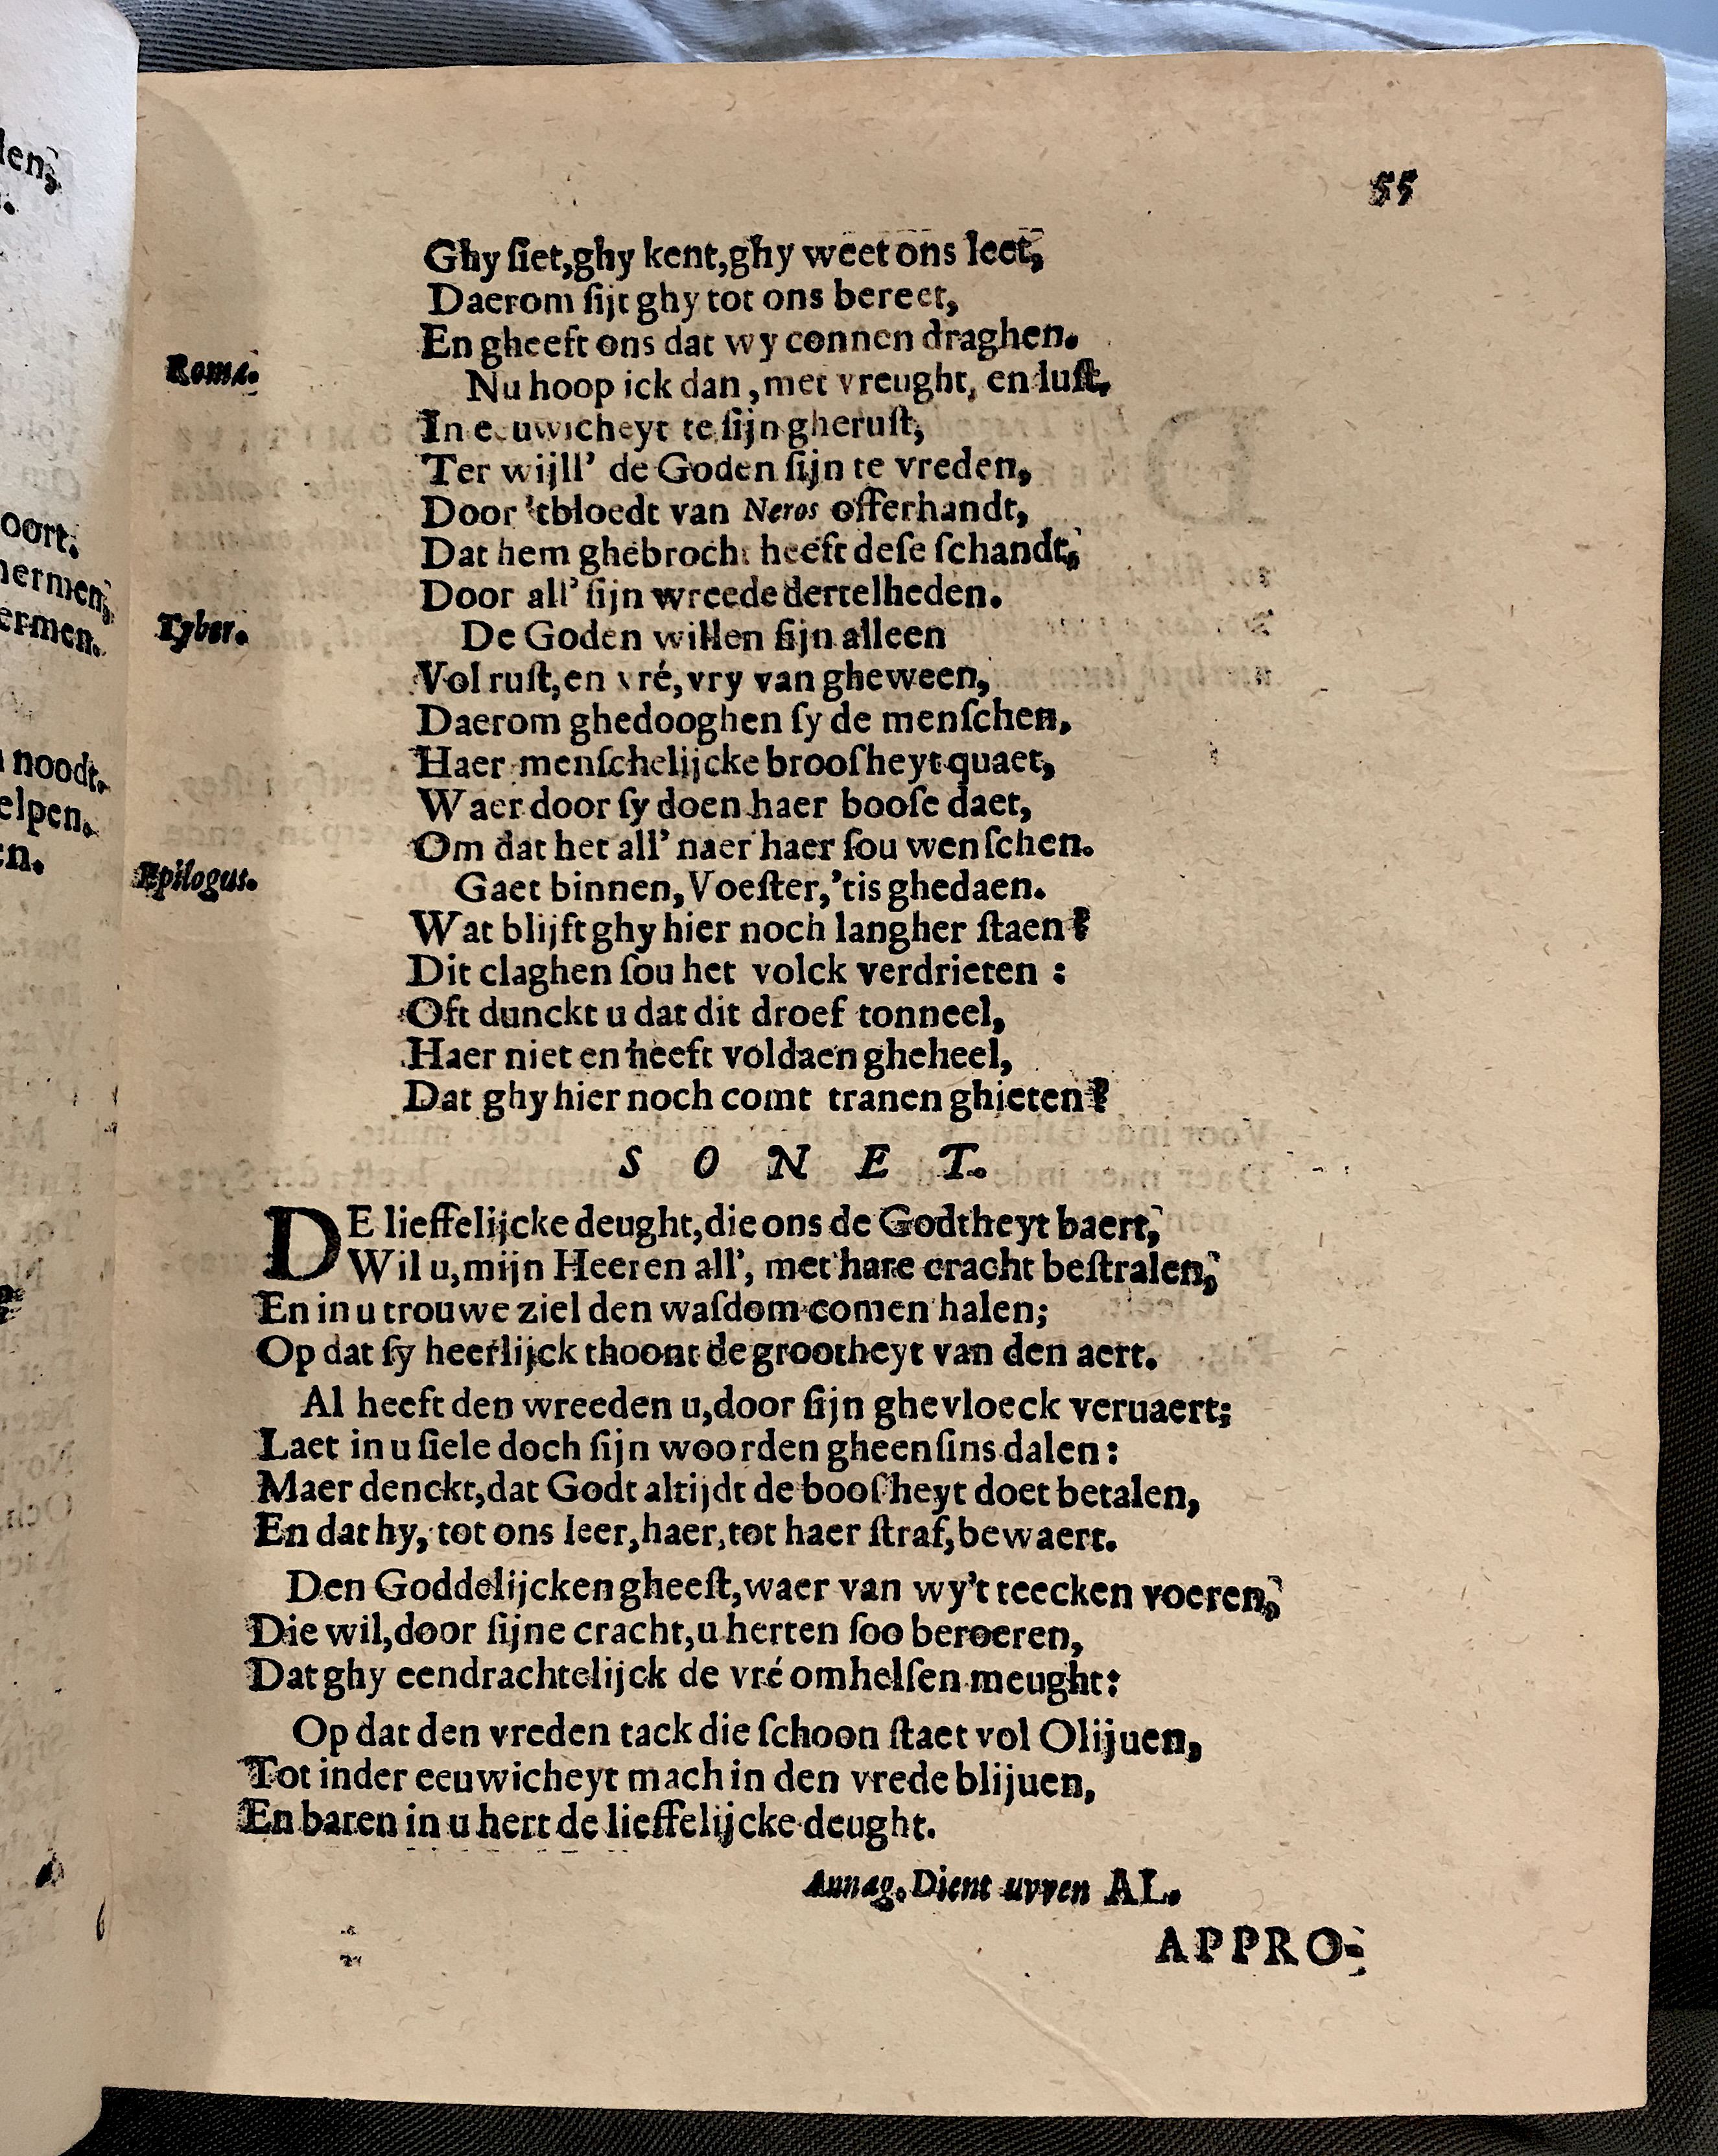 55
Ghy ſiet,ghy kent,ghy weet ons leet,
Daerom ſijt ghy tot ons bereet,
En gheeft ons dat wy connen draghen.
Roma.
Nu hoop ick dan, met vreught, en luſt,
In eeuwicheyt te ſijn gheruſt,
Ter wijll' de Goden ſijn te vreden,
Door 'tbloedt van Neros offerhandt,
Dat hem ghebrocht heeft deſe ſchandt,
Door all' ſijn wreede dertelheden.
Tyber.
De Goden willen ſijn alleen
Vol ruſt, en vré, vry van gheween,
Daerom ghedooghen ſy de menſchen,
Haer menſchelijcke brooſheyt quaet,
Waer door ſy doen haer booſe daet,
Om dat het all' naer haer ſou wenſchen.
Epilogus.
Gaet binnen, Voeſter, 'tis ghedaen.
Wat blijft ghy hier noch langher ſtaen?
Dit claghen ſou het volck verdrieten :
Oft dunckt u dat dit droef tonneel,
Haer niet en heeft voldaen gheheel,
Dat ghy hier noch comt tranen ghieten?
SONET.
DE lieffelijcke deught, die ons de Godtheyt baert,
Wil u, mijn Heeren all', met hare cracht beſtralen,
En in u trouwe ziel den waſdom comen halen;
Op dat ſy heerlijck thoont de grootheyt van den aert.
Al heeft den wreeden u, door ſijn ghevloeck veruaert;
Laet in u ſiele doch ſijn woorden gheenſins dalen :
Maer denckt, dat Godt altijdt de booſheyt doet betalen,
En dat hy, tot ons leer, haer, tot haer ſtraf, bewaert.
Den Goddelijcken gheeſt, waer van wy't teecken voeren,
Die wil, door ſijne cracht, u herten ſoo beroeren,
Dat ghy eendrachtelijck de vré omhelſen meught:
Op dat den vreden tack die ſchoon ſtaet vol Olijuen,
Tot inder eeuwicheyt mach in den vrede blijuen,
En baren in u hert de lieffelijcke deught.
Annag. Dient uvven AL.
APPRO-